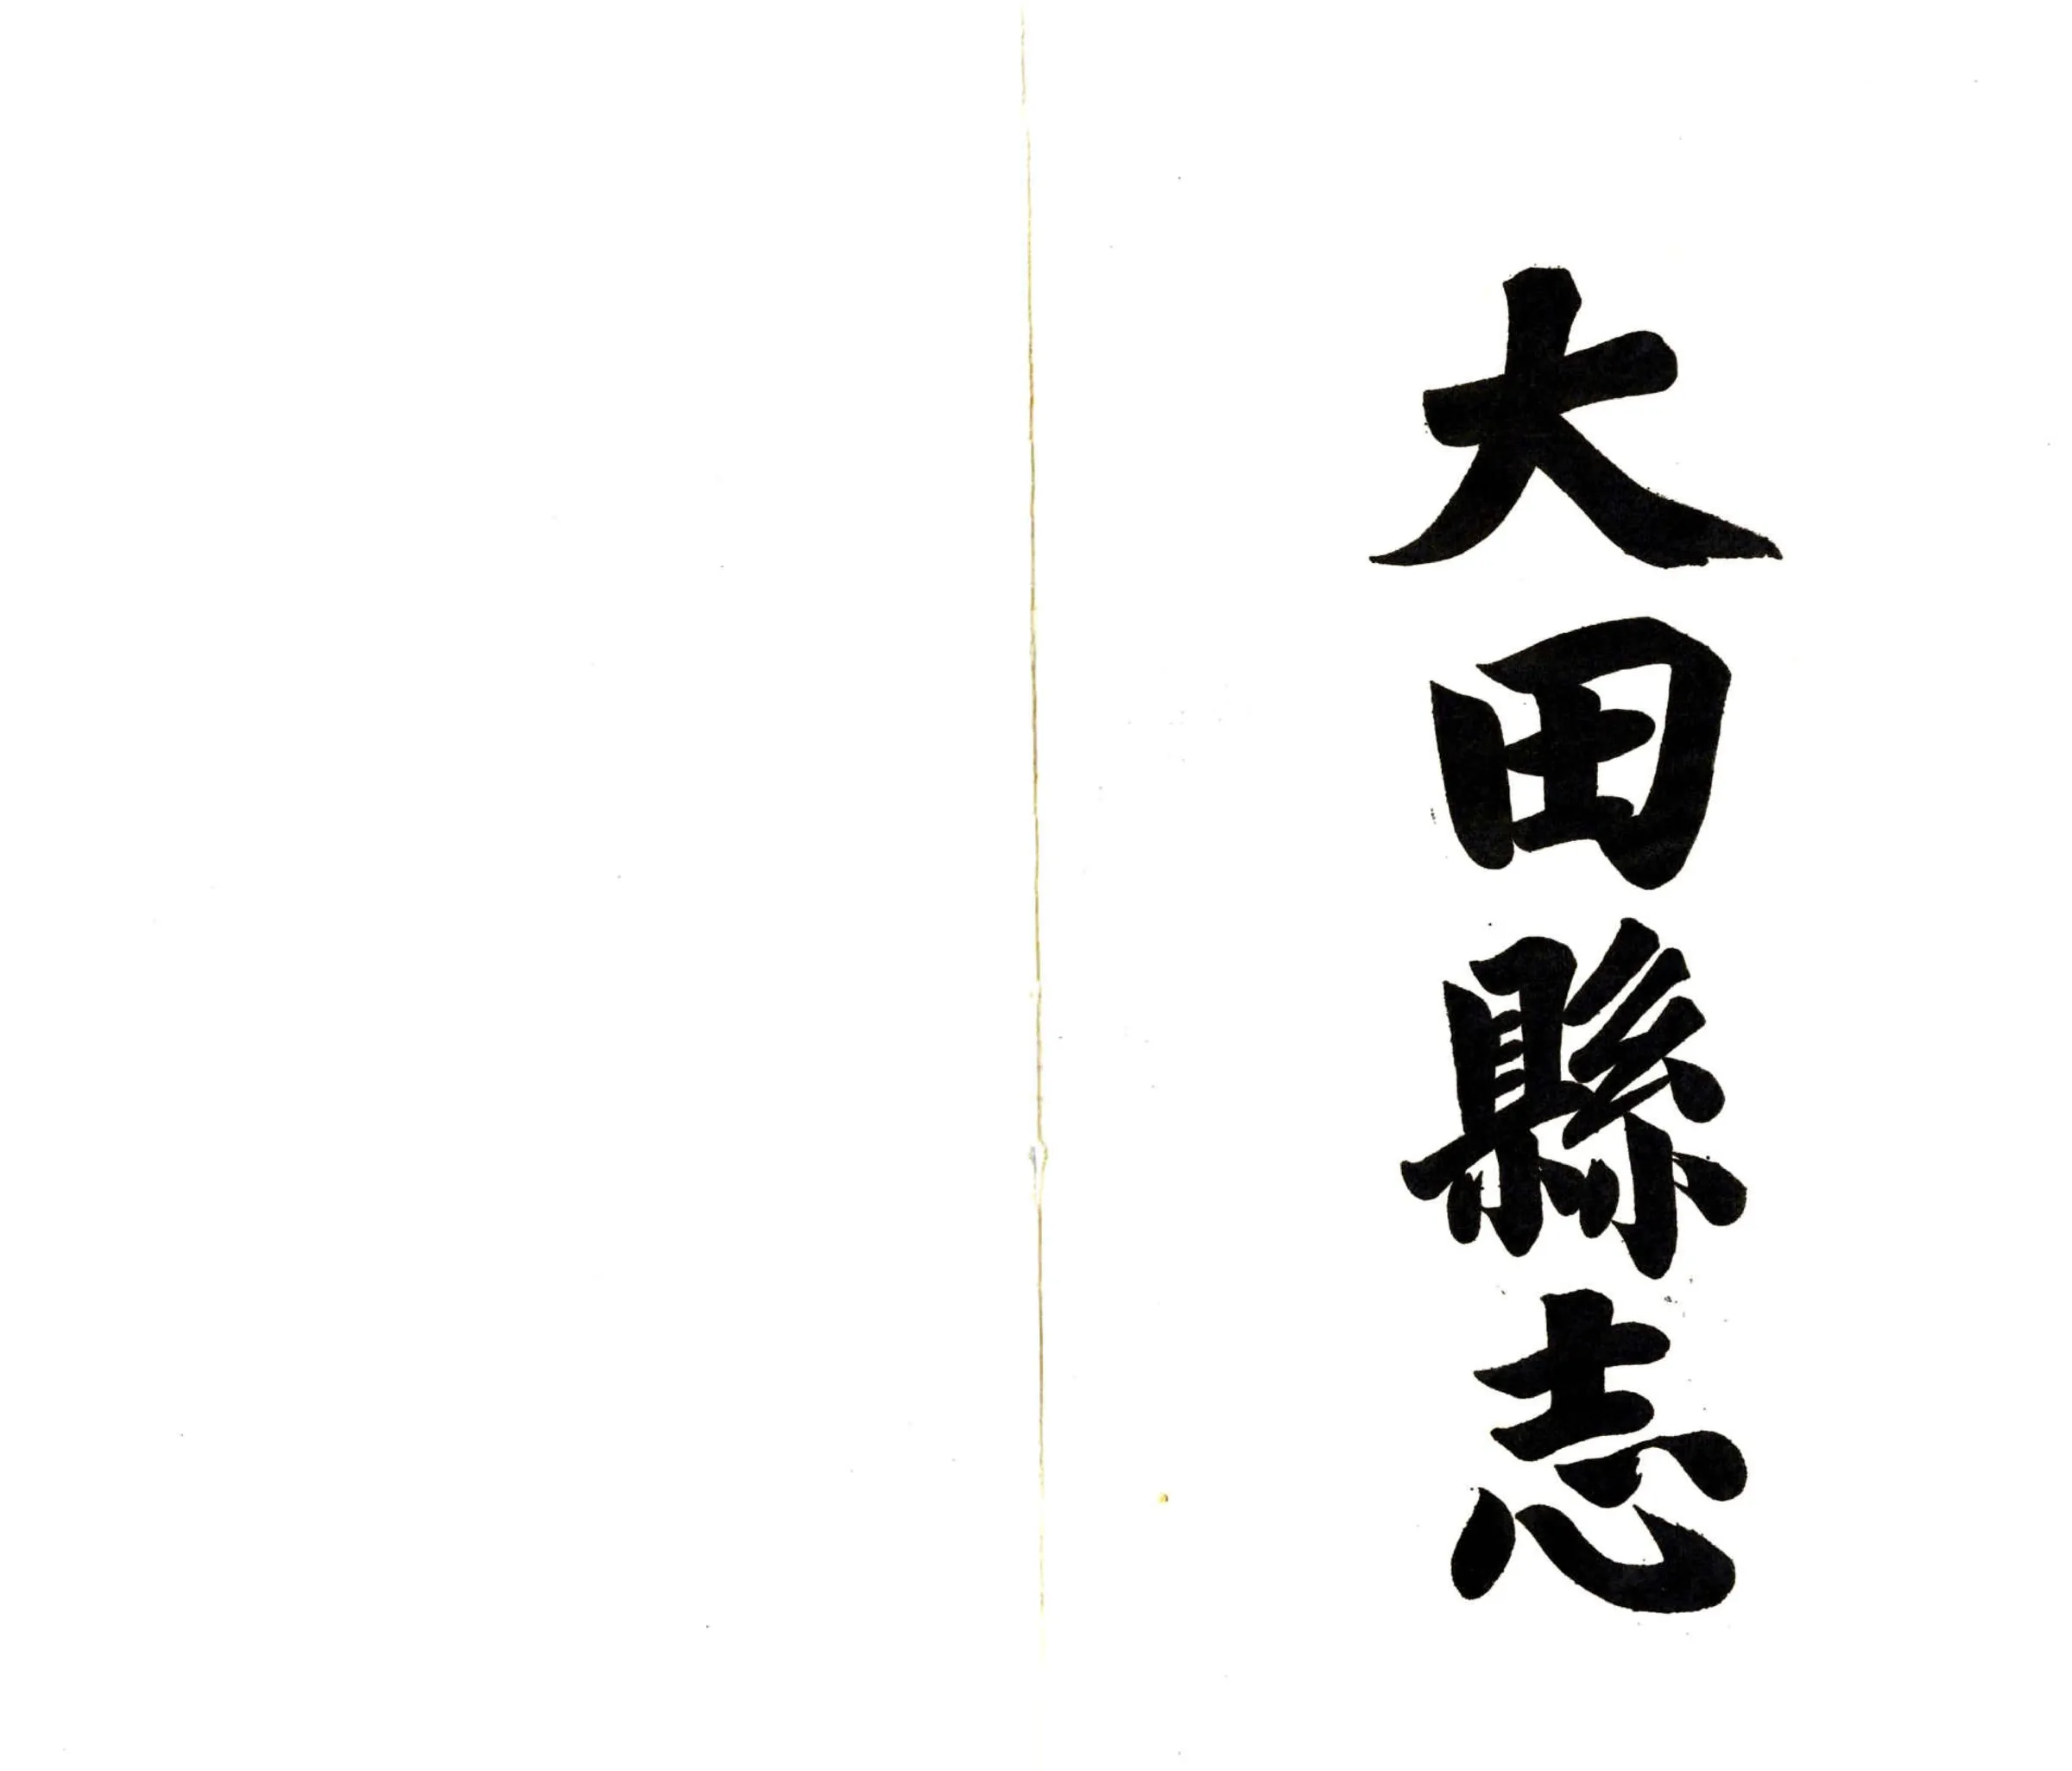 大田縣志